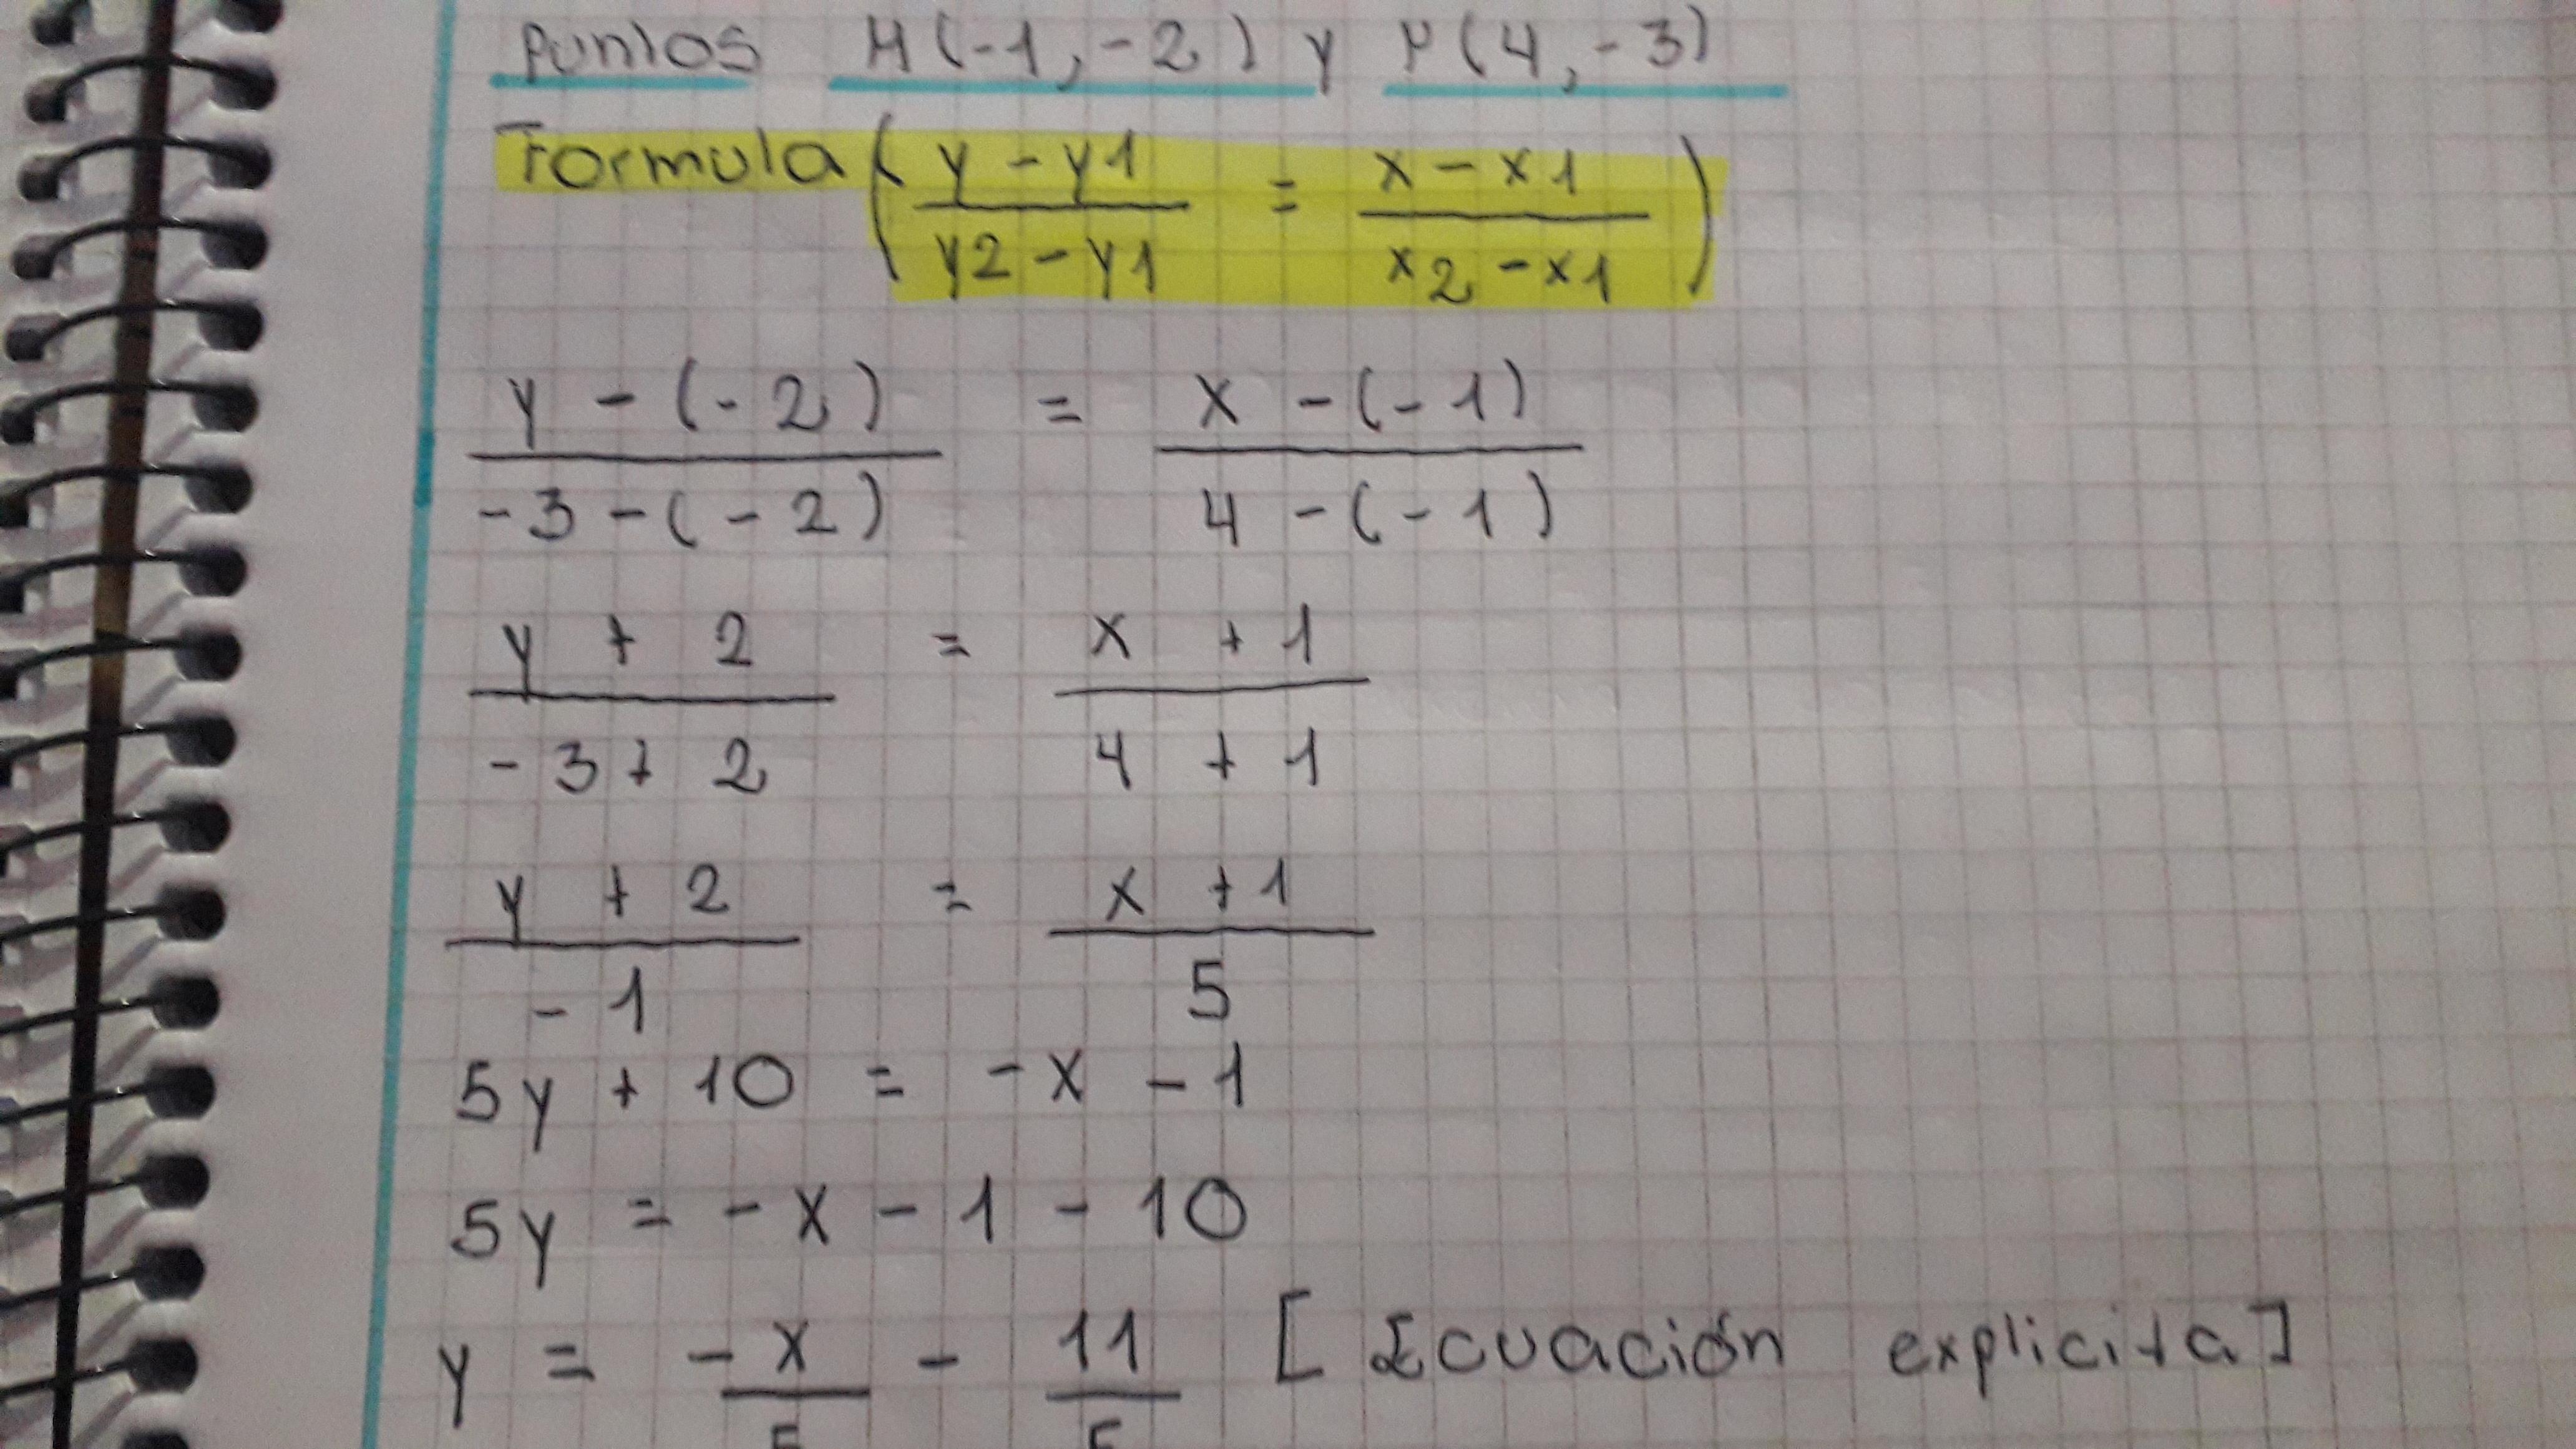 Puntos H(-1,-2) y P(4,-3)
Formula ( y - y1 / y2 - y1 = x - x1 / x2 - x1 )
y - (-2) = x - (-1)
-3 - (-2) 4 - (-1)
y + 2 = x + 1
-3 + 2 4 + 1
y + 2 = x + 1
-1 5
5y + 10 = -x - 1
5y = -x - 1 - 10
y = -x/5 - 11/5 [Ecuación explicita]